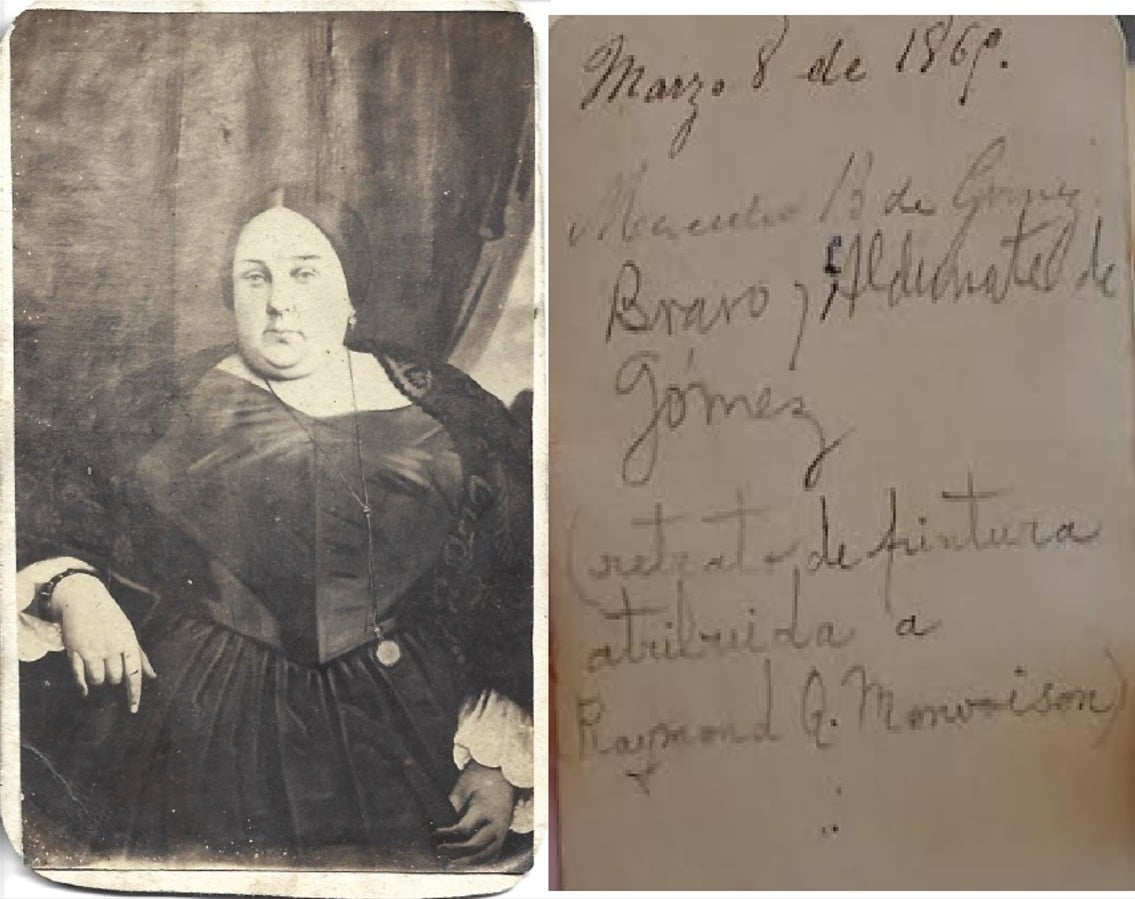 Marzo 8 de 1869.
B de Gómez.
Bravo y Aldunate de
Gómez
(retrato de pintura
atribuida a
(Raymond Q. Monvoisin)